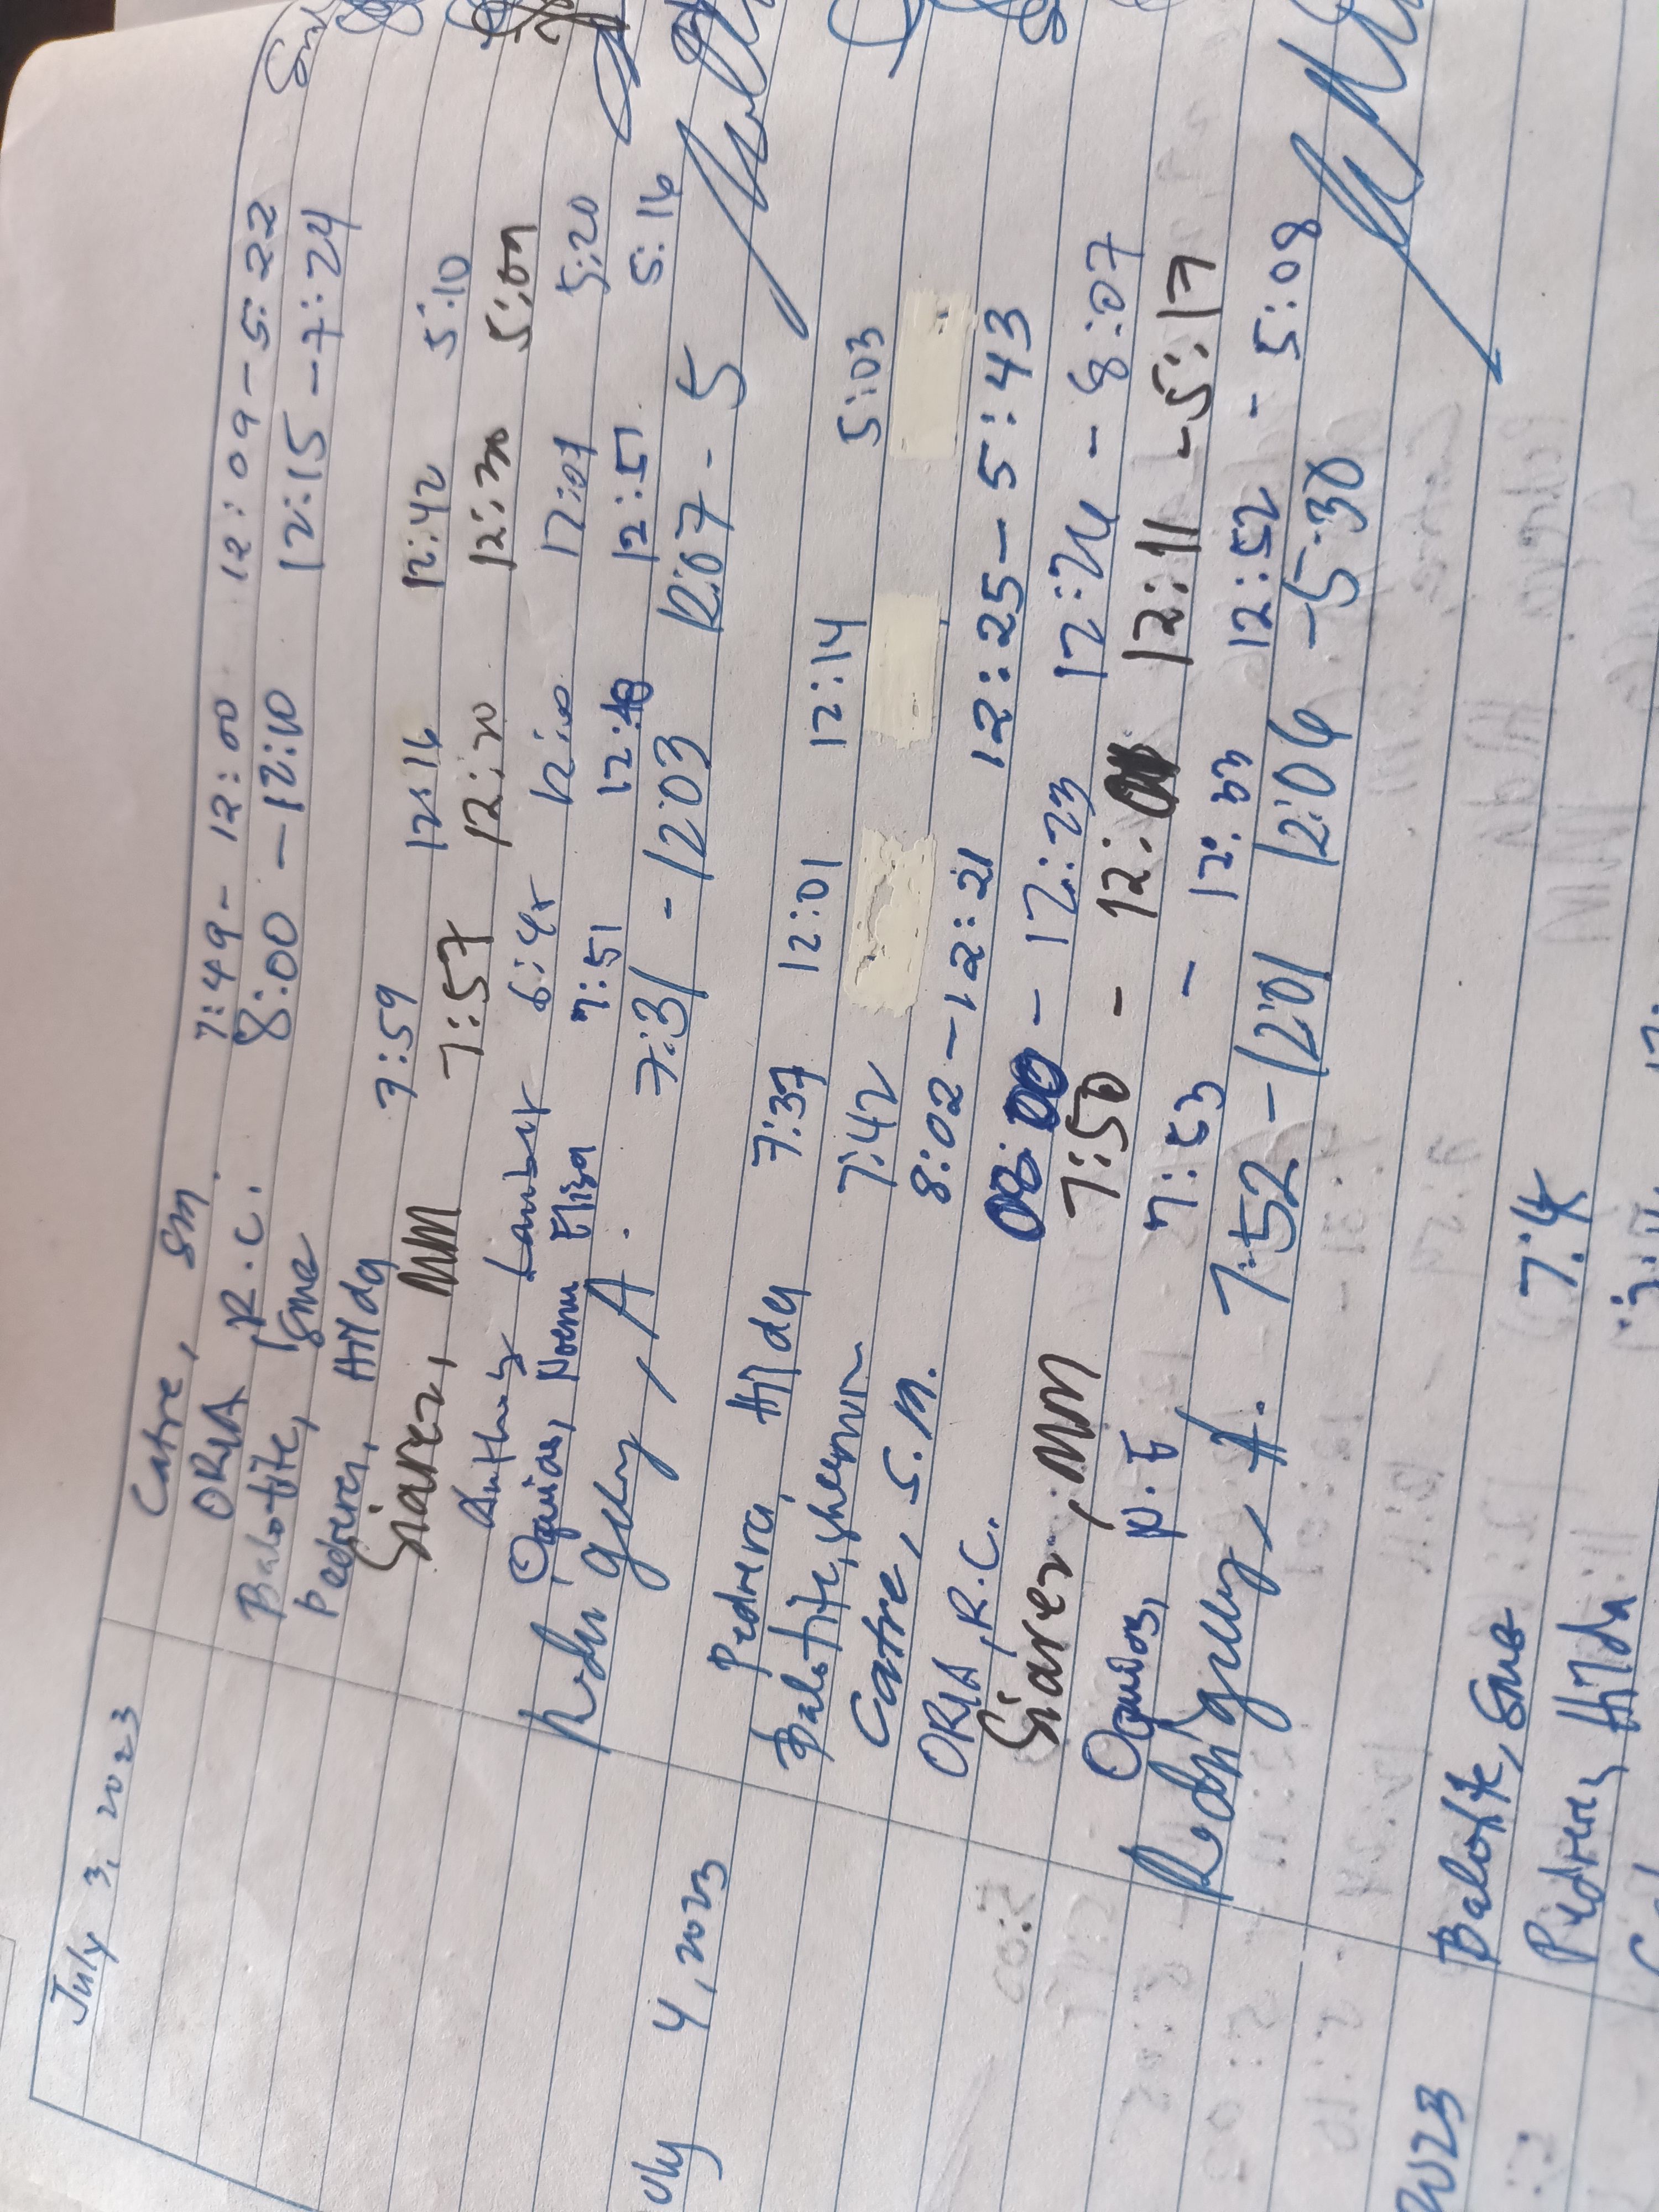 July 3, 2023 Catre, SM 7:49 - 12:00 12:09 - 5:22
ORIA, R.C. 8:00 - 12:10 12:15 - 7:24
Balotite, Sme
Pedrera, Hilda 7:59 12:16 12:42 5:10
Siarez, MM 7:57 12:20 12:30 5:09
Anthony Lambert 6:45 12:00 12:07 5:20
Oquias, Noemi Elisa 7:51 12:48 12:51 5:16
A. 7:31 - 12:03 12:07 - 5
uly 4, 2023 Pedrera, Hilda 7:37 12:01 12:14 5:03
Balotite, Sheerwin 7:42
Catre, S.M. 8:02 - 12:21 12:25 - 5:43
ORIA, R.C. 08:00 - 12:23 12:24 - 8:07
Siarez, MM 7:50 - 12: 12:11 - 5:17
Oquias, N.E 7:53 - 12:33 12:52 - 5:08
A. 7:52 - 12:01 12:06 - 5:30
2023 Balotite, Sme 7:4
Pedrera, Hilda